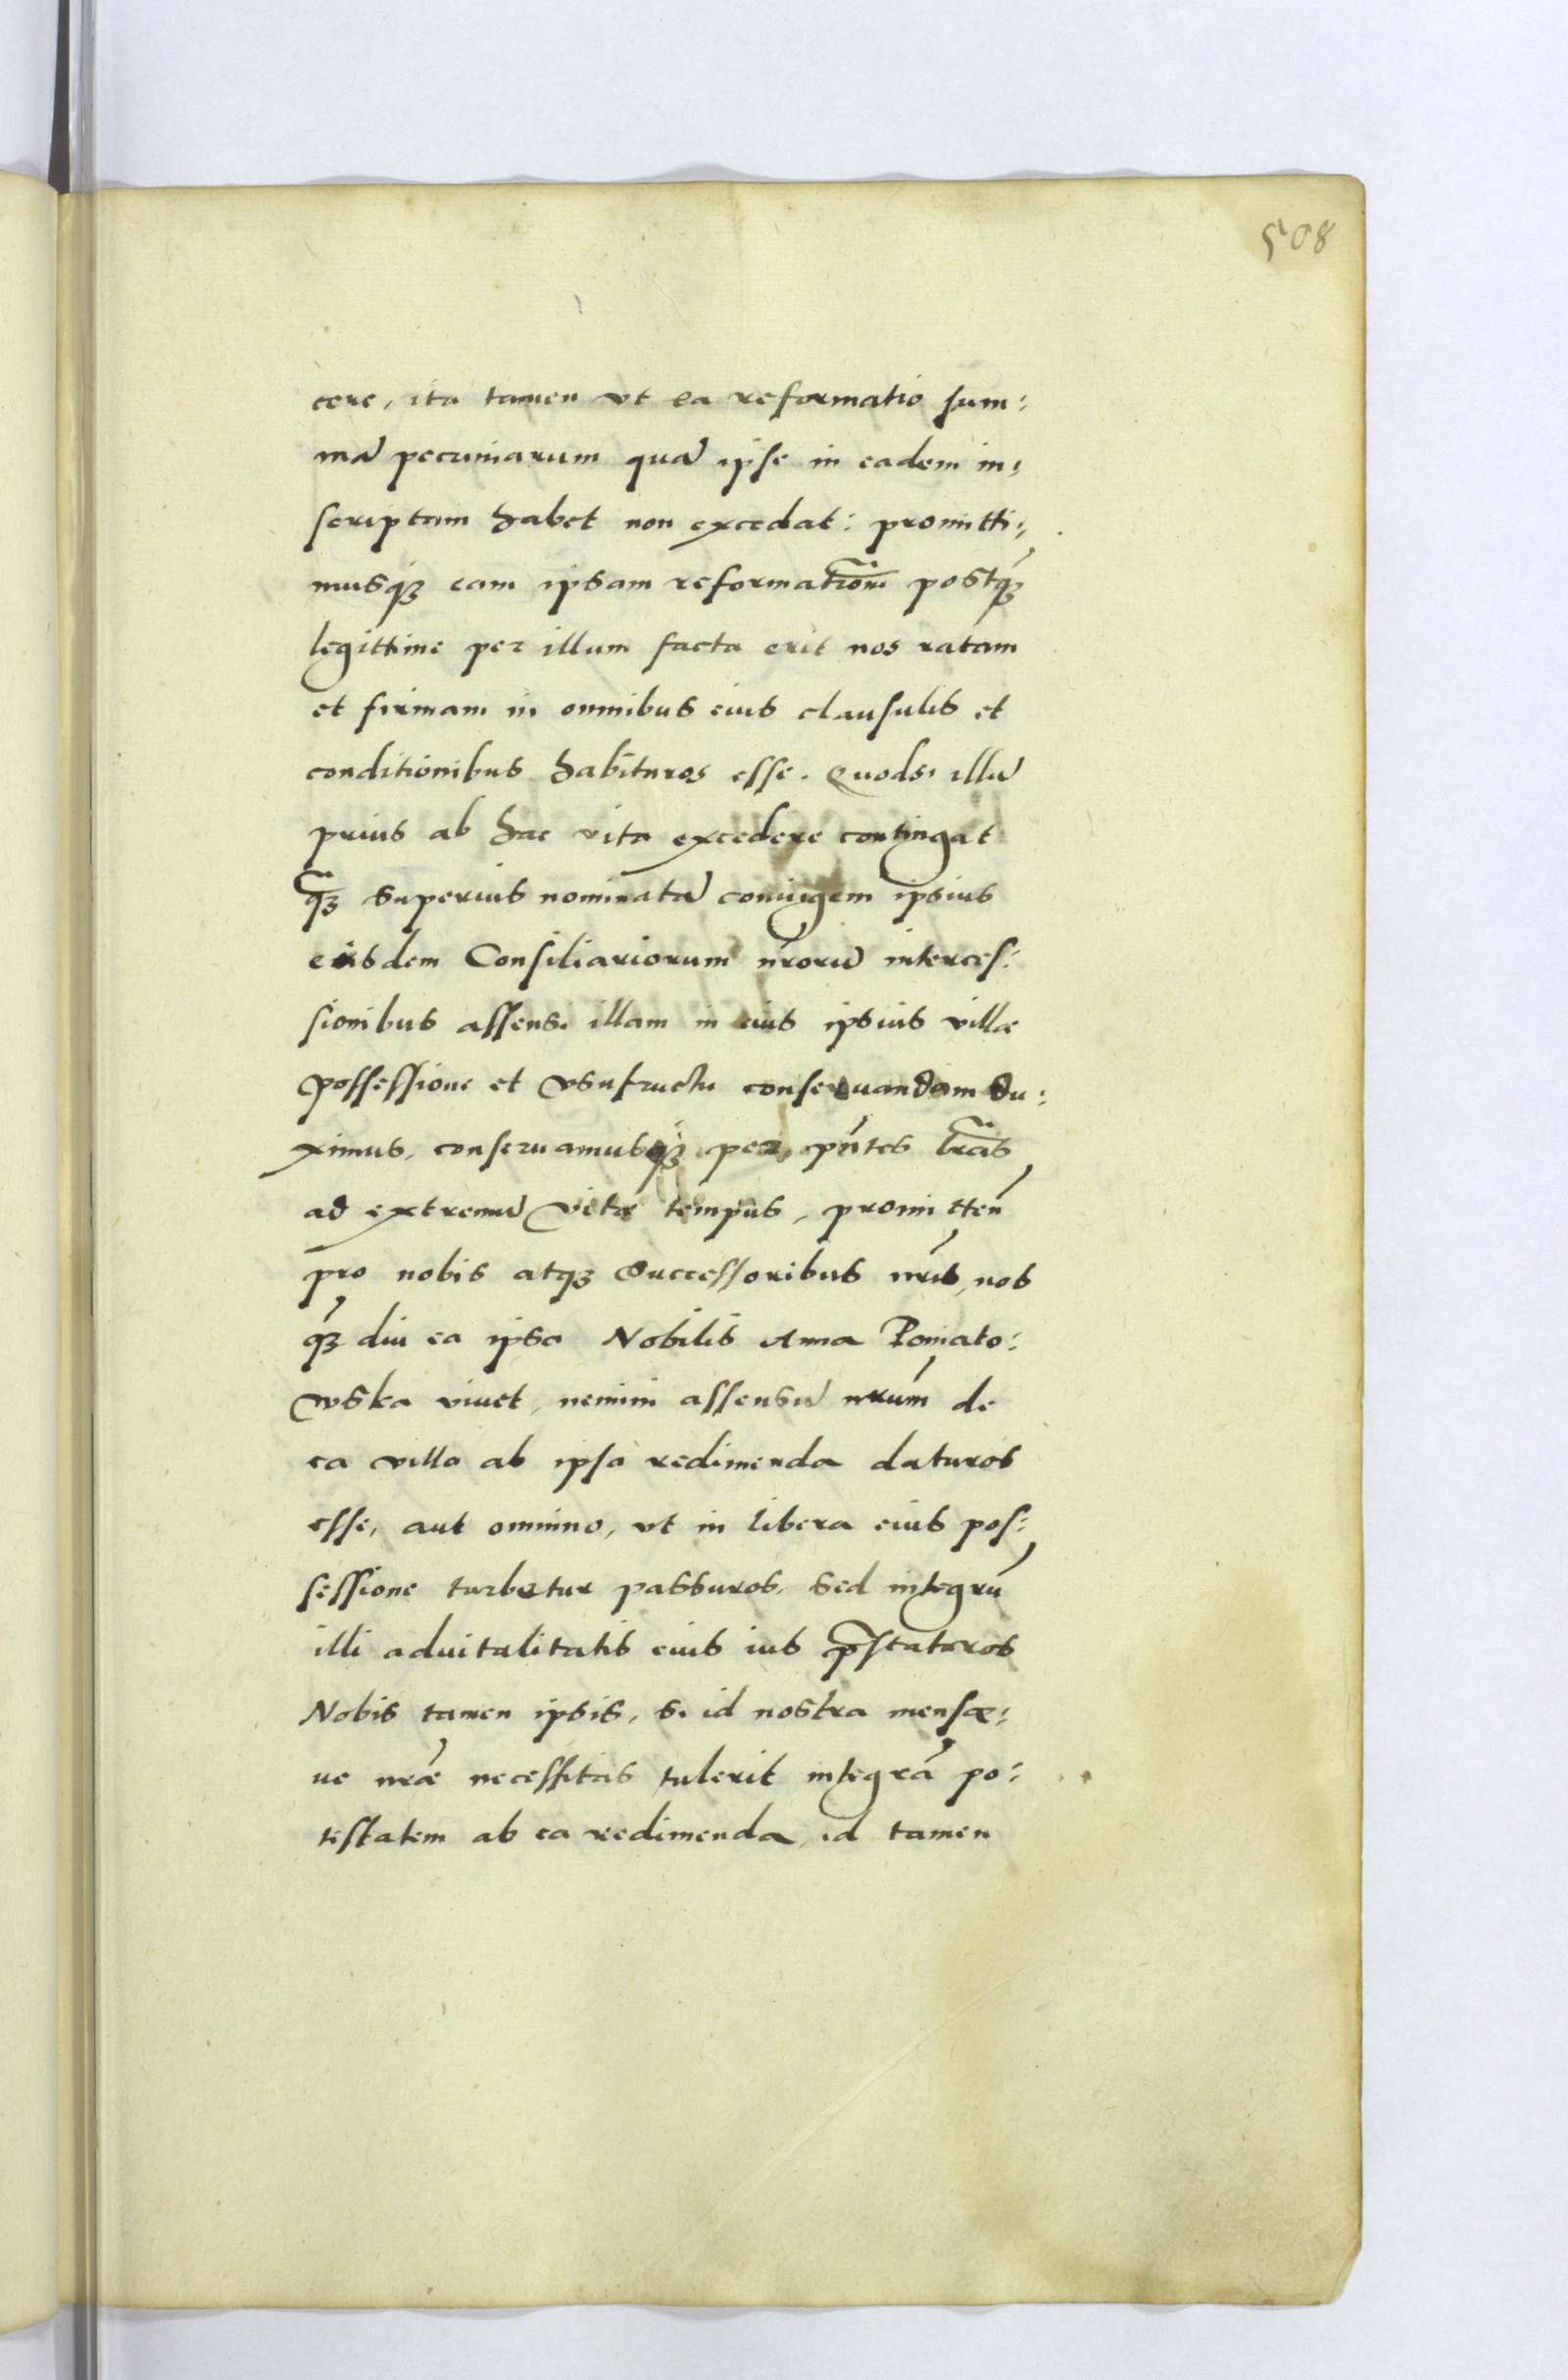 508
cere, ita tamen vt ea reformatio sum:
mā pecuniarum quā ipse in eadem in:
scriptam habet non excedat: promitti:
musqꝫ eam ipsam reformationē postqꝫ
legittime per illum facta erit nos ratam
et firmam in omnibus eius clausulis et
conditionibus habituros esse. Quodsi illū
prius ab hac vita excedere contingat
qꝫ superius nominatā coniugem ipsius
eisdem Consiliariorum nrorū interces:
sionibus assensi illam in eius ipsius villæ
possessione et vsufructu conseruandam du:
ximus, conseruamusqꝫ per pntes lras
ad extremū vitæ tempus, promitten
pro nobis atqꝫ Successoribus nris, nos
qꝫ diu ea ipsa Nobilis Anna Poniato:
wska viuet, nemini assensū nrum de
ea villa ab ipsa redimenda daturos
esse, aut omnino, vt in libera eius pos:
sessione turbetur passuros, sed integrū
illi aduitalitatis eius ius pstaturos
Nobis tamen ipsis, si id nostra mensæ:
ue nræ necessitas tulerit integrā po:
testatem ab ea redimenda, id tamen